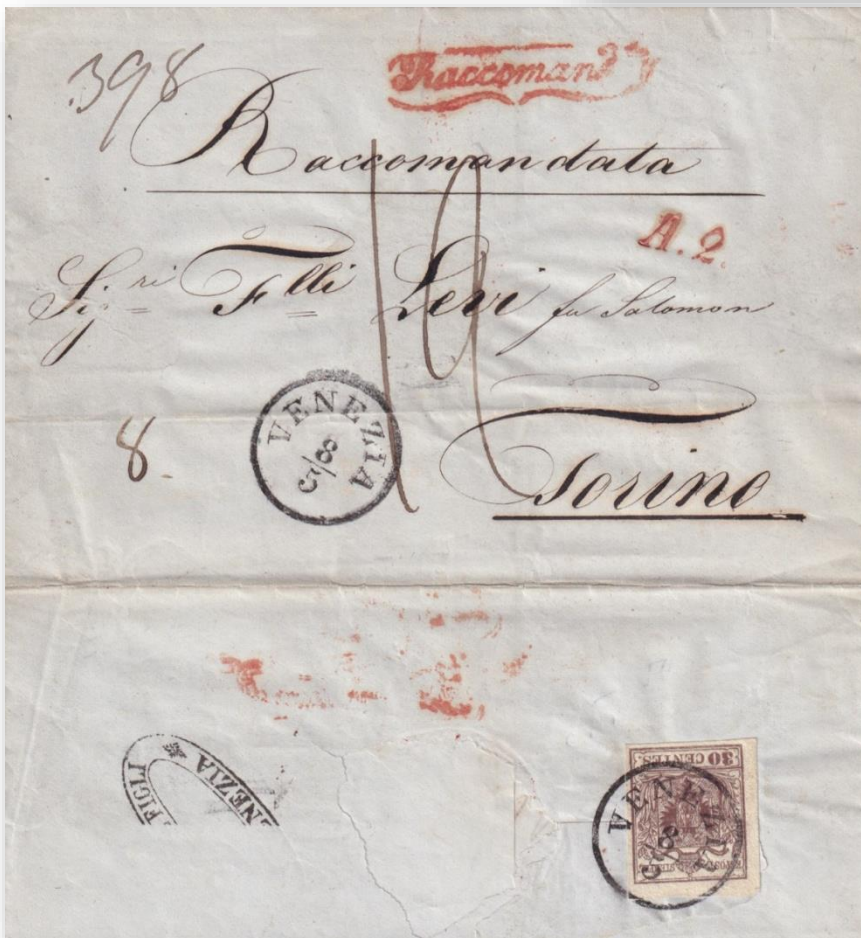 398
Raccomand
Raccomandata
A. 2.
Sigri Flli Levi fu Salomon
VENEZIA
8.
Torino
FIGLI
NEZIA
30 CENTES.
VENEZIA